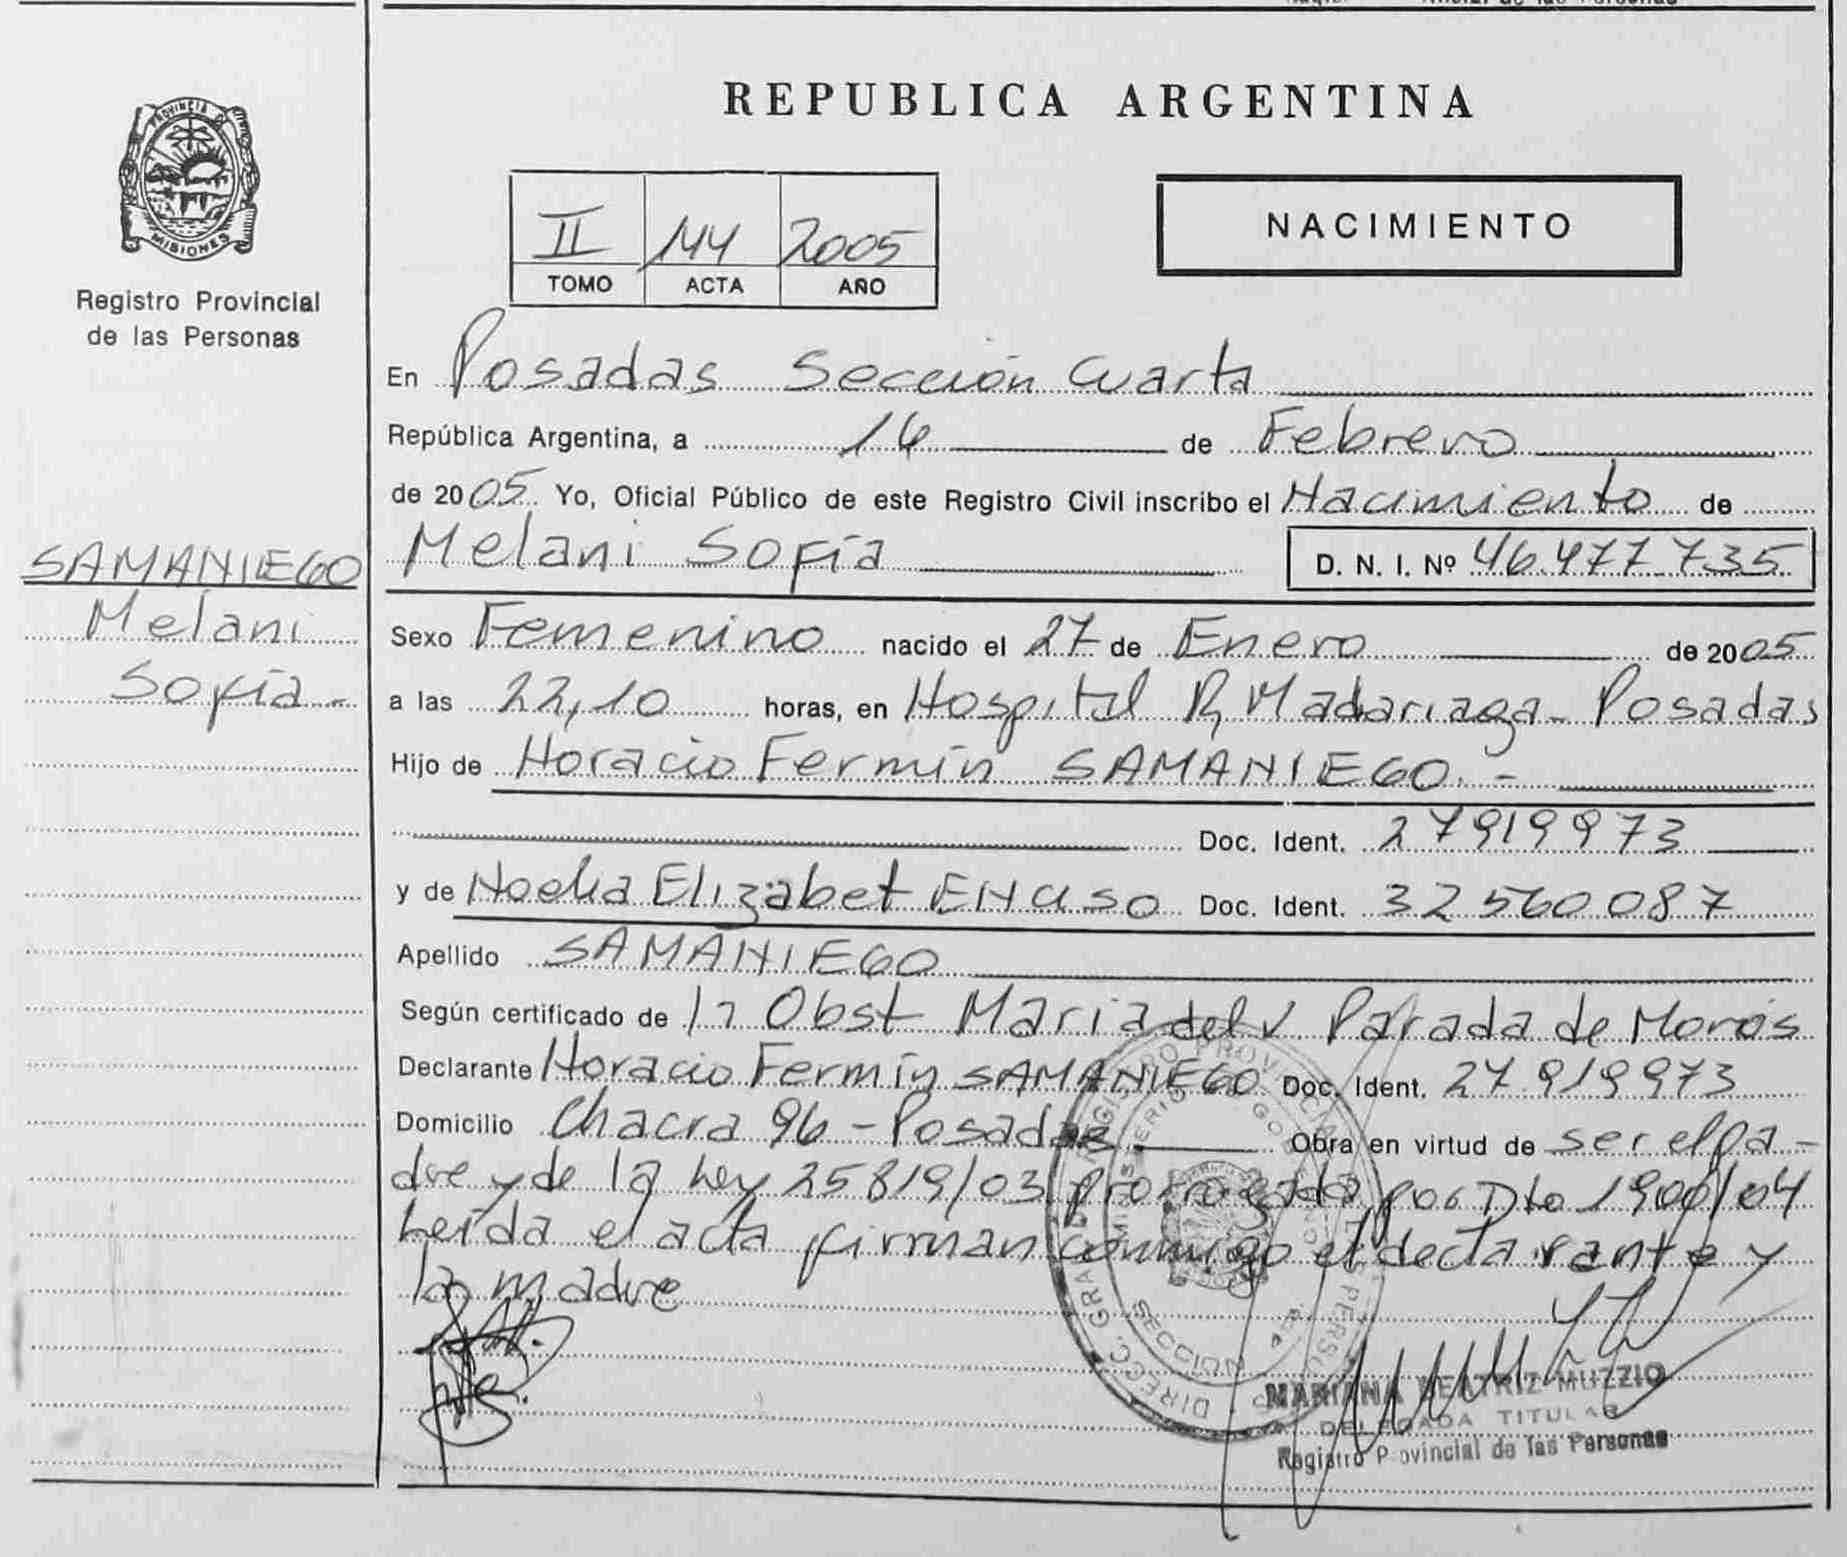 REPUBLICA ARGENTINA
PROVINCIA DE
MISIONES
Registro Provincial
de las Personas
II 144 2005
TOMO ACTA AÑO
NACIMIENTO
SAMANIEGO
Melani
Sofía -
En Posadas Sección Cuarta
República Argentina, a 16 de Febrero
de 2005 Yo, Oficial Público de este Registro Civil inscribo el Nacimiento de
Melani Sofía D. N. I. Nº 46.477.735
Sexo Femenino nacido el 27 de Enero de 2005
a las 22,10 horas, en Hospital R, Madariaga - Posadas
Hijo de Horacio Fermín SAMANIEGO. -
Doc. Ident. 27919973
y de Noelia Elizabet Doc. Ident. 32560087
Apellido SAMANIEGO
Según certificado de la Obst Maria del V Parada de
Declarante Horacio Fermín SAMANIEGO Doc. Ident. 27919973
Domicilio Chacra 96 - Posadas Obra en virtud de ser el pa-
dre y de la Ley 25819/03 prorrogada por Dto 1900/04
Leída el acta firman conmigo el declarante y
la madre
MARIANA BEATRIZ MUZZIO
DELEGADA TITULAR
Registro Provincial de las Personas